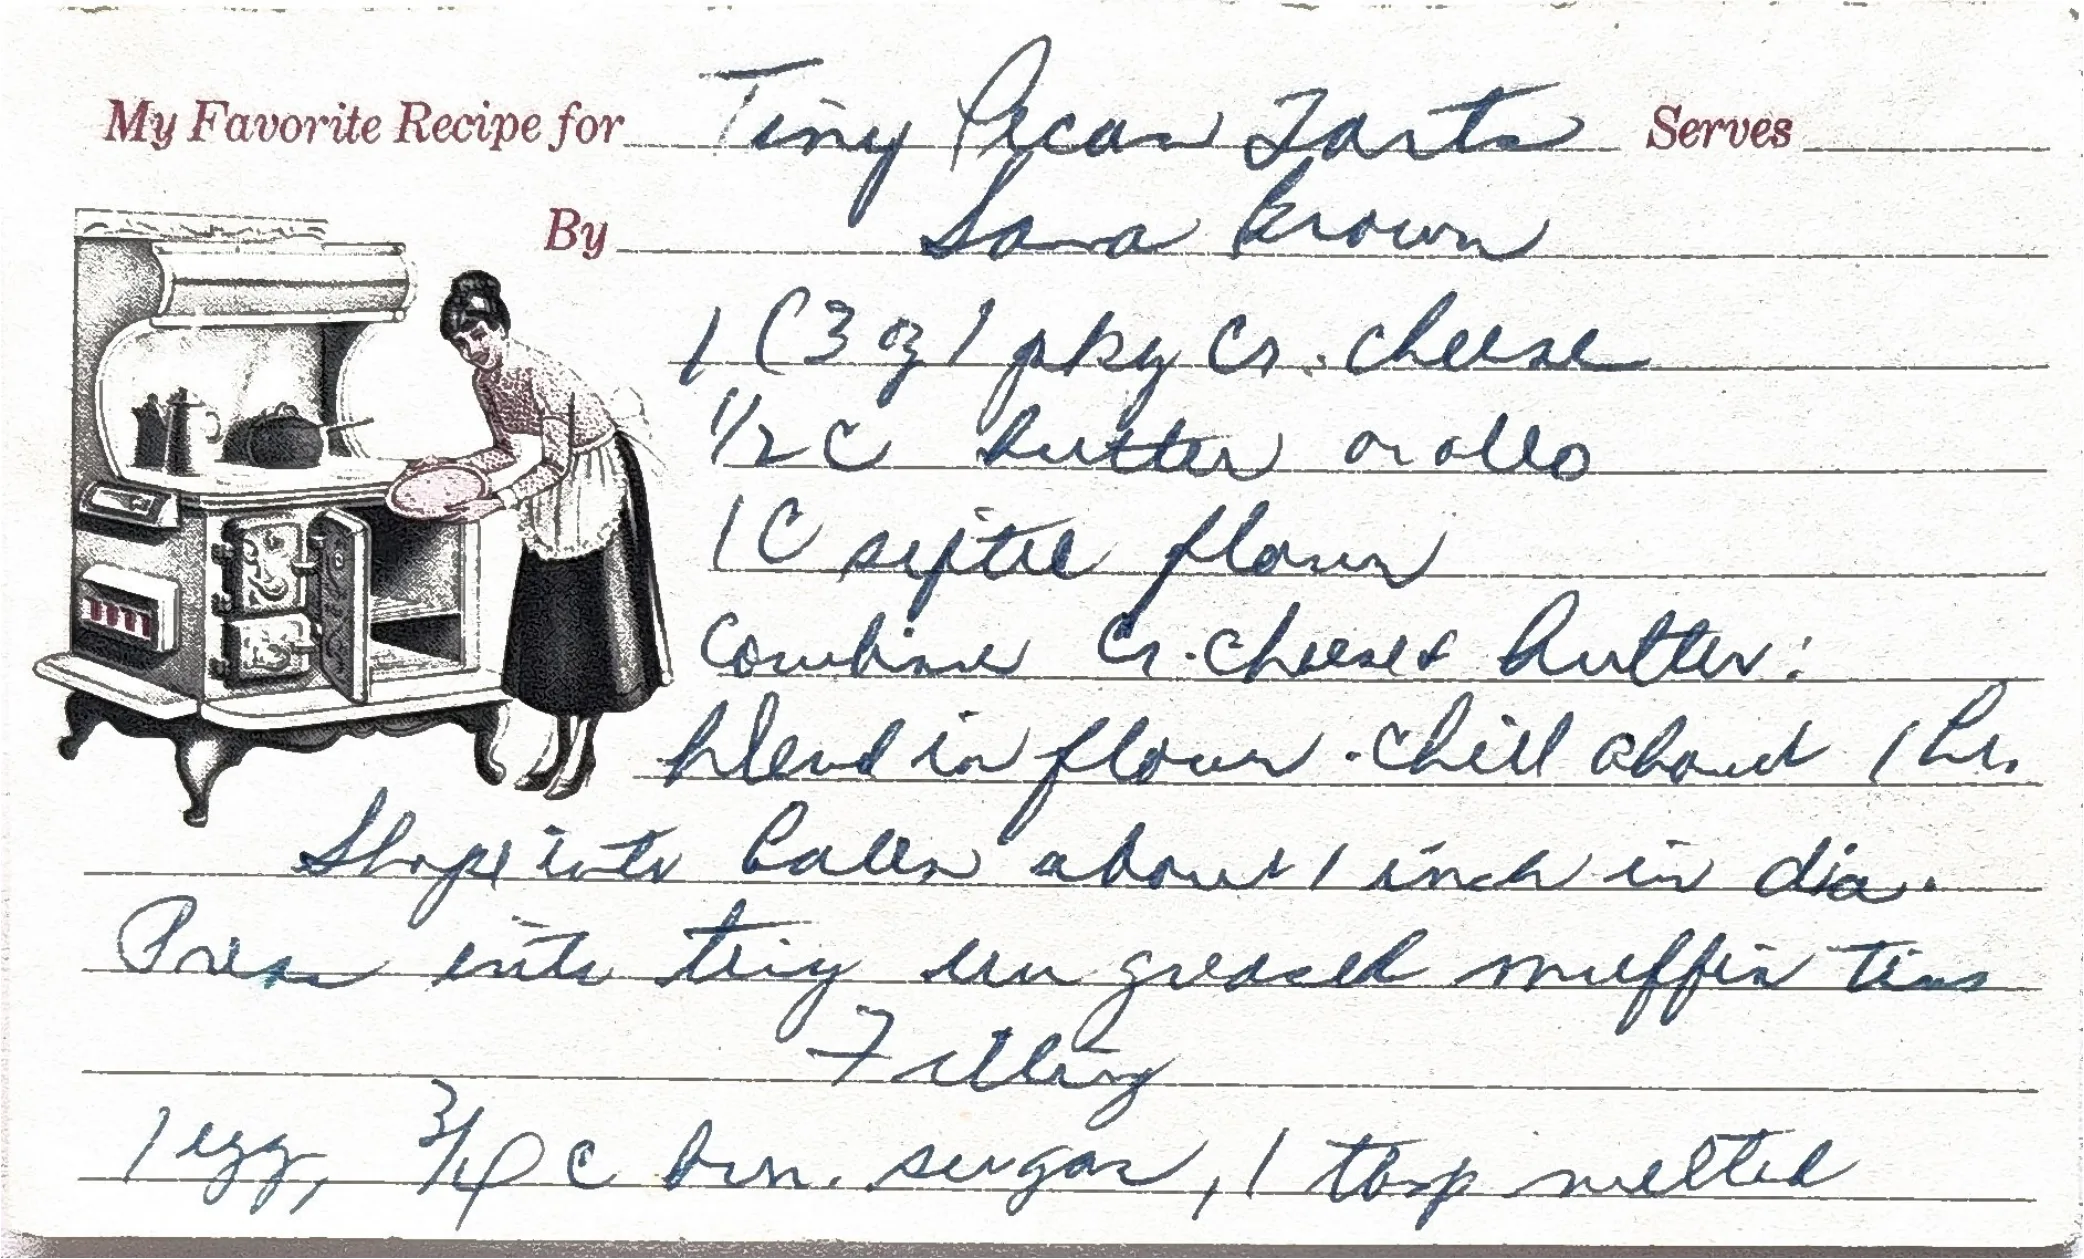 My Favorite Recipe for Tiny Pecan Tarts Serves
By Sara Brown
1 (3 oz) pkg Cr. cheese
1/2 C butter or oleo
1 C sifted flour
Combine Cr. cheese & butter;
blend in flour. Chill about 1 hr.
Shape into balls about 1 inch in dia.
Press into tiny un greased muffin tins
Filling
1 egg, 3/4 C brn. sugar, 1 tbsp melted